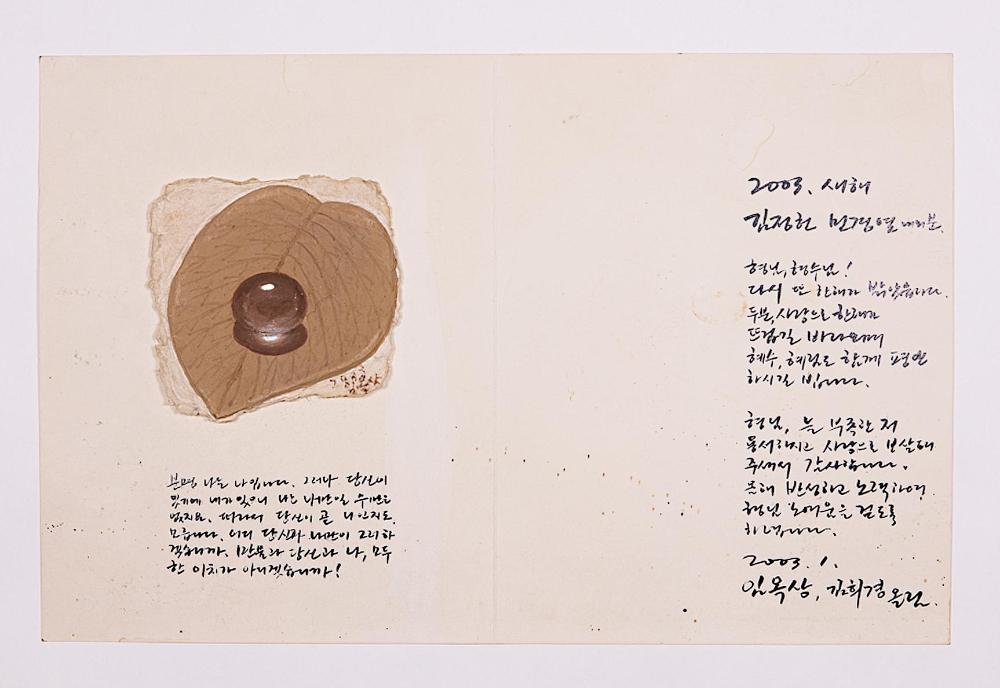 분명 나는 나입니다. 그러나 당신이
있기에 내가 있으니 나는 나만일 수만은
없지요. 따라서 당신이 곧 나인지도
모릅니다. 어디 당신과 나만이 그러하
겠습니까. 만물과 당신과 나, 모두
한 이치가 아니겠습니까!
2003. 새해
김정헌 민경열 내외분.
형님, 형수님!
다시 또 한해가 밝았습니다.
두분, 사랑으로 한해가
뜨겁길 바라오며
혜수, 혜림도 함께 평안
하시길 빕니다.
형님, 늘 부족한 저
용서하시고 사랑으로 보살펴
주셔서 감사합니다.
올해 반성하고 노력하여
형님 노여움을 걷도록
하겠습니다.
2003. 1.
임옥상, 김희경 올림.